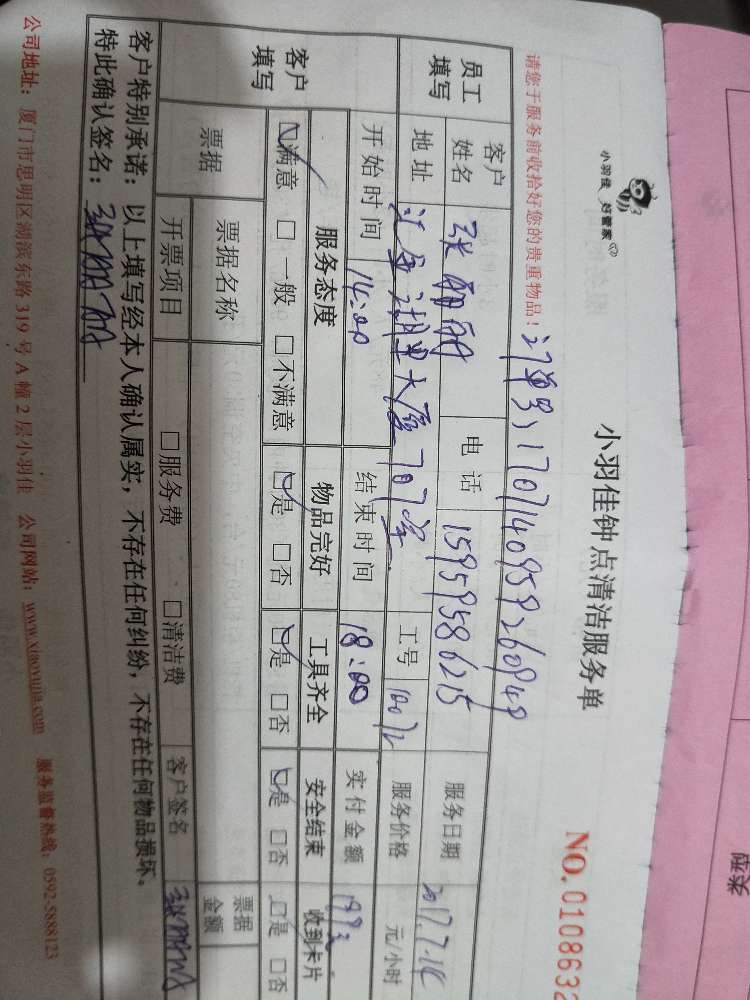 小羽佳 好管家
小羽佳钟点清洁服务单
NO.0108632
请您于服务前收拾好您的贵重物品！
订单号:
员工填写
客户姓名
张丽丽
电话
15959586215
服务日期
2017.7.14
地址
湖里大厦707室
工号
服务价格
元/小时
客户填写
开始时间
14:00
结束时间
18:00
实付金额
服务态度
物品完好
工具齐全
安全结束
收到卡片
☑满意 □一般 □不满意
☑是 □否
☑是 □否
☑是 □否
☑是 □否
票据
票据名称
票据金额
开票项目
□服务费
□清洁费
客户签名
张丽丽
客户特别承诺：以上填写经本人确认属实，不存在任何纠纷，不存在任何物品损坏。
特此确认签名：张丽丽
公司地址：厦门市思明区湖滨东路319号A幢2层小羽佳 公司网站：www.xiaoyujia.com 服务监督热线：0592-5888123